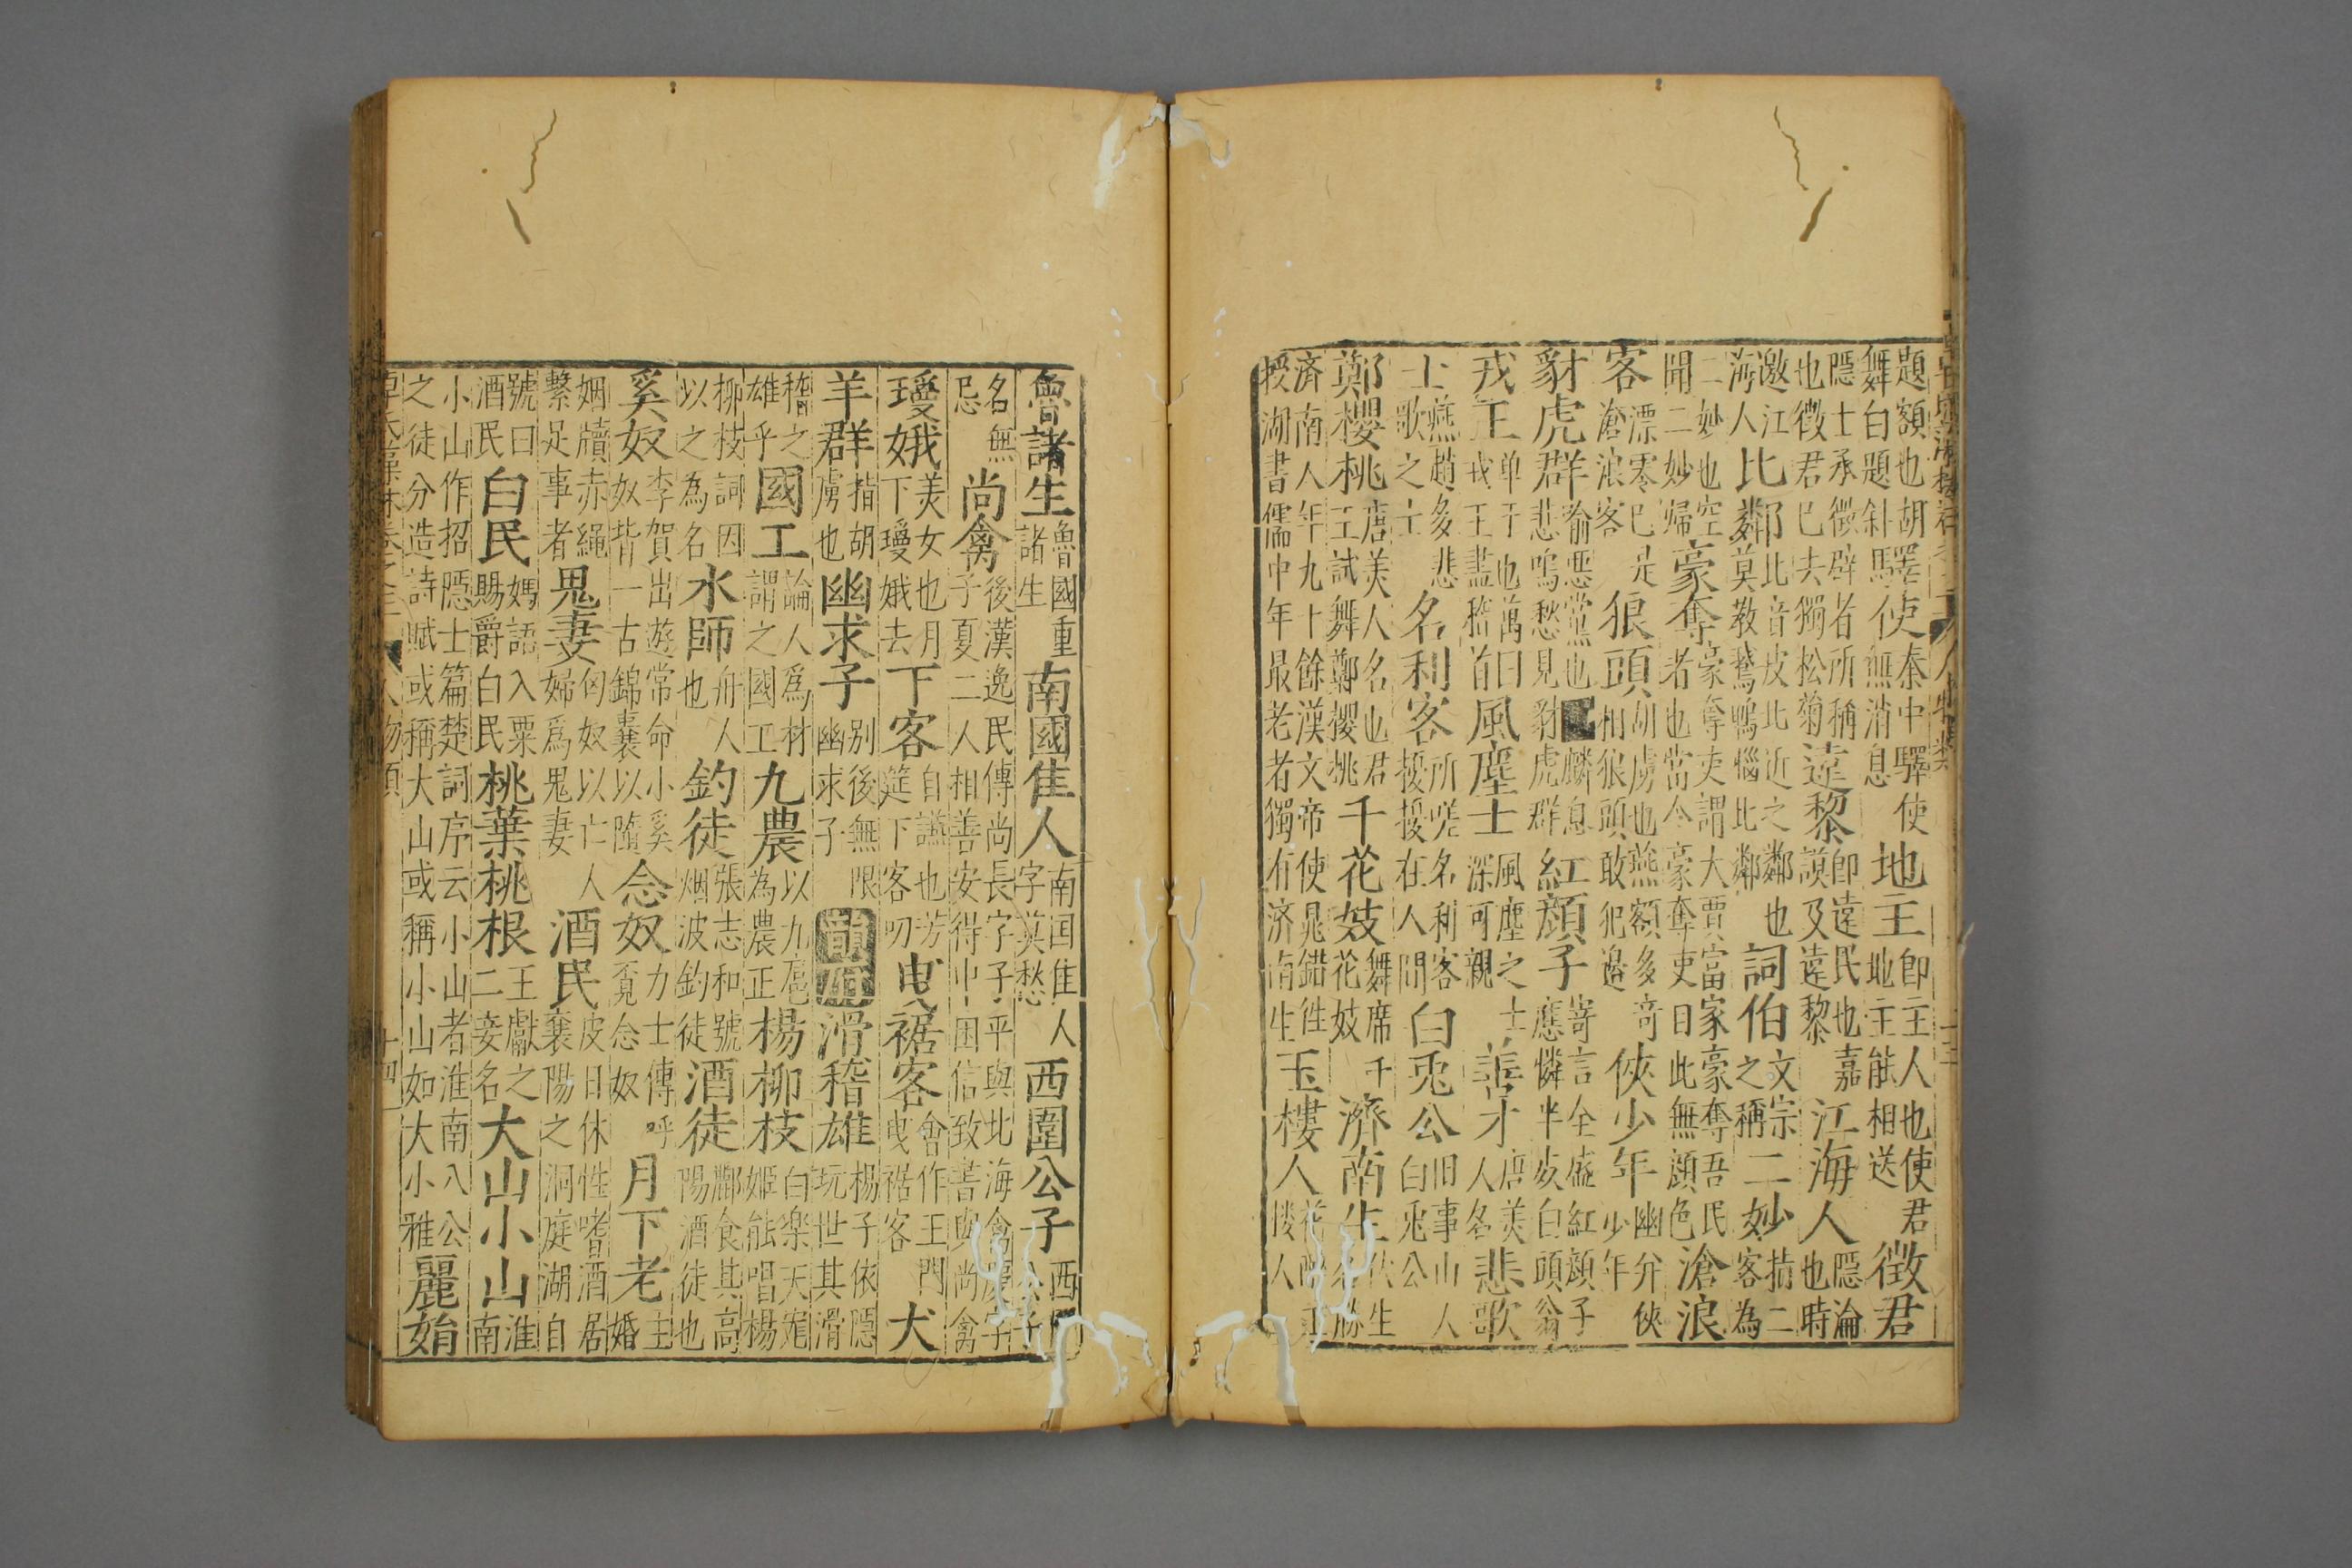 題額也胡舞白題斜驛使秦中驛使無消息地主即主人也使君地主能相送徵君
隱士承徵辟者所稱也徵君已去獨松菊遠黎即遠民也嘉謨及遠黎江海人隱淪也時
邀江海人比鄰比音皮北近之鄰也莫教鵞鴨惱比鄰詞伯文宗之稱二妙指二客為
二妙也空聞二妙歸豪奪豪奪吏謂大賈富家豪奪吾民者也當令豪奪吏曰此無顏色滄浪
客漂零已是滄浪客狼頭胡虜也燕額多奇相狼頭敢犯邉俠少年幽并俠少年
豺虎群喻惡黨也麟息悲鳴愁見豺虎群紅顏子寄言全盛紅顏子應憐半死白頭翁
戎王单于也萬曰戎王盡稽首風塵士風塵之士深可親善才唐美人名悲歌
士燕趙多悲歌之士名利客所嗟名利客擾擾在人間白兎公旧事山人白兎公
鄭櫻桃唐美人名也君王試舞鄭櫻桃千花妓舞席千花妓濟南生伏生名勝
済南人年九十餘漢文帝使晁錯徃授湖書儒中年最老者獨有済南生玉樓人花酔玉楼人
魯諸生魯國重諸生南國佳人南国佳人字莫愁西園公子西園公子
名無忌尚禽後漢逸民傳尚長字子平與北海禽慶字子夏二人相善安得中困信致書與尚禽
瓊娥美女也月下瓊娥去下客自謙也芳筵下客叨曳裾客會作王門曳裾客犬
羊群指胡虜也幽求子别後無限幽求子滑稽雄楊子依隱玩世其滑
稽之雄乎國工論人爲材謂之國工九農以九扈為農正楊柳枝白楽天姬能唱楊
柳枝詞因以之為名水師舟人也釣徒張志和號烟波釣徒酒徒酈食其高陽酒徒也
奚奴李賀出遊常命小奚奴背一古錦囊以隨念奴力士傳呼覔念奴月下老主婚
姻牘赤繩繫足事者鬼妻匈奴以亡人婦爲鬼妻酒民皮日休性嗜酒居襄陽之洞庭湖自
號曰酒民白民媽語入粟賜爵白民桃葉桃根王獻之二妾名大山小山淮南
小山作招隠士篇楚詞序云小山者淮南八公之徒分造詩賦或稱大山或稱小山如大小雅麗娟
卓氏藻林卷之三 人物類 十四